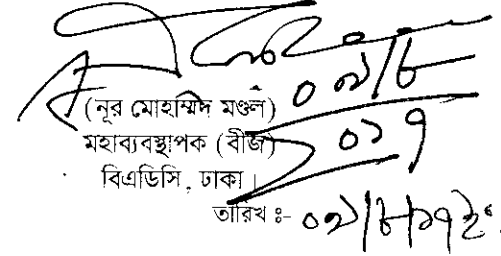 ০৯/৮
(নূর মোহাম্মদ মণ্ডল)
০১৭
মহাব্যবস্থাপক (বীজ)
বিএডিসি, ঢাকা।
তারিখ ঃ- ০৯/৮/১৭ ইং